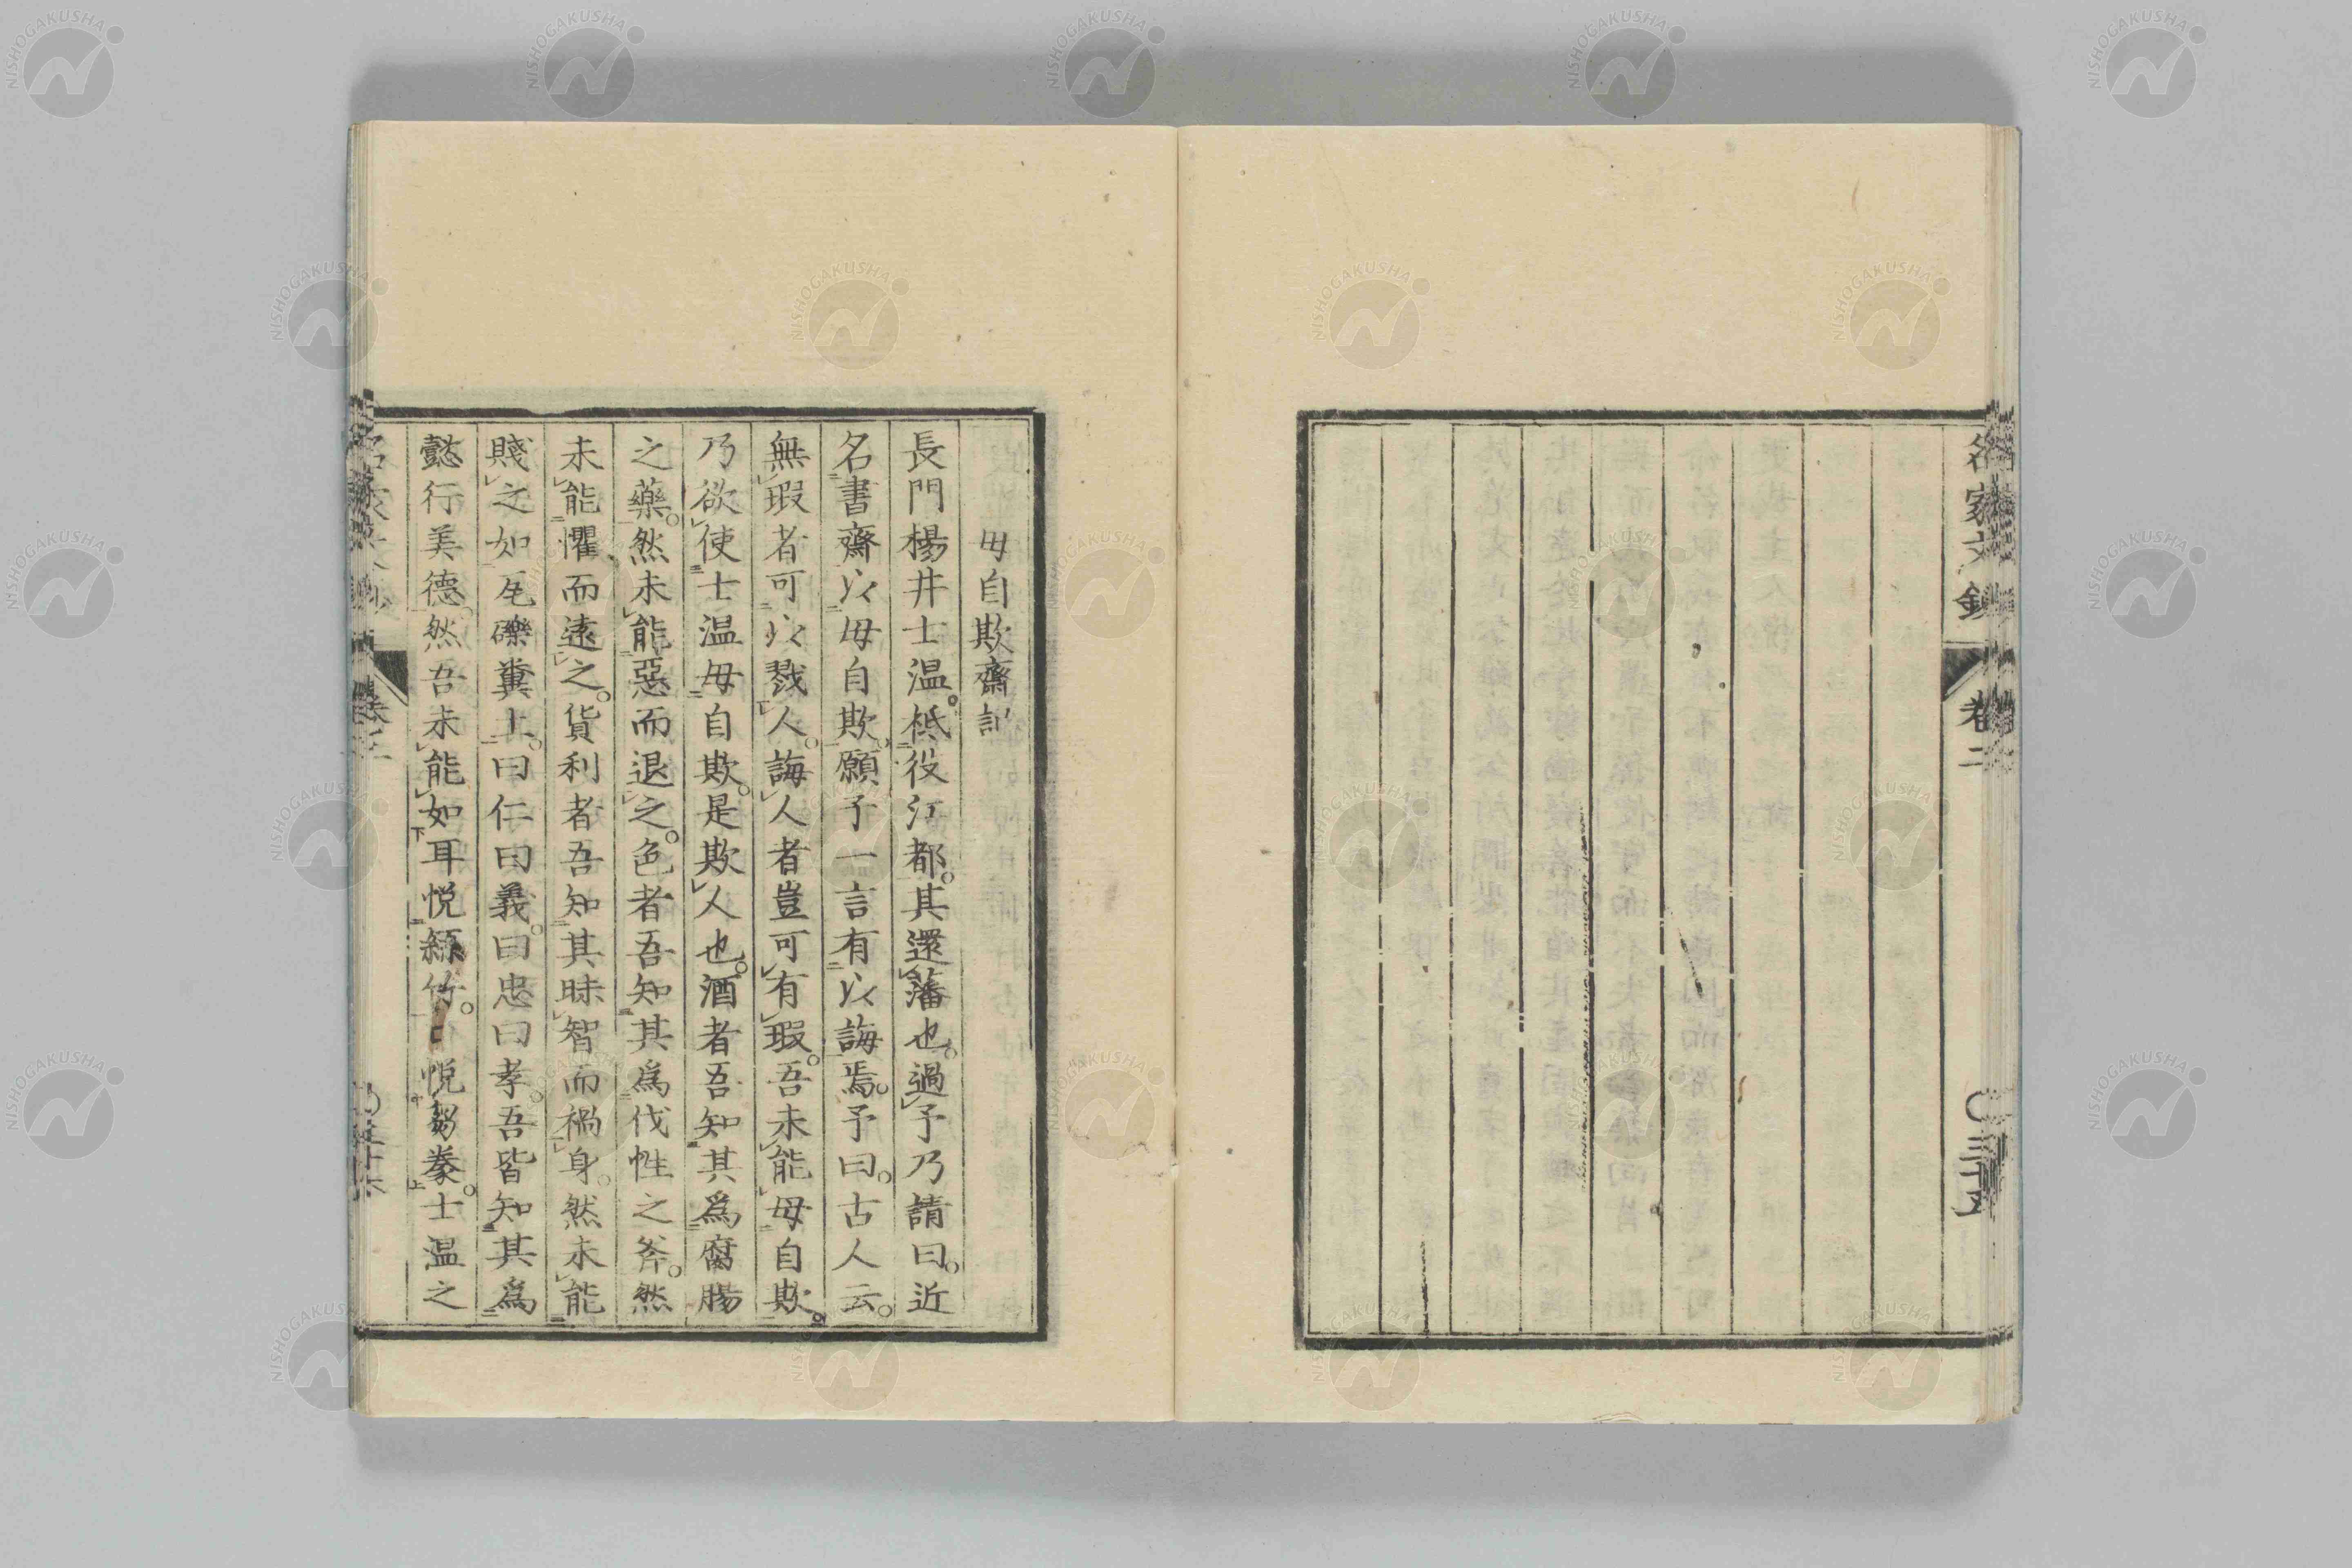 名家文鈔 卷二 〇三十五
毋自欺齋記
長門楊井士温。祗役江都。其還藩也。過予乃請曰。近
名書齋以毋自欺。願予一言有以誨焉。予曰。古人云。
無瑕者可以戮人。誨人者豈可有瑕。吾未能毋自欺。
乃欲使士温毋自欺。是欺人也。酒者吾知其爲腐腸
之藥。然未能惡而退之。色者吾知其爲伐性之斧。然
未能懼而遠之。貨利者吾知其昧智而禍身。然未能
賤之如瓦礫糞土。曰仁曰義。曰忠曰孝。吾皆知其爲
懿行美德。然吾未能如耳悅絲竹。口悅芻豢。士温之